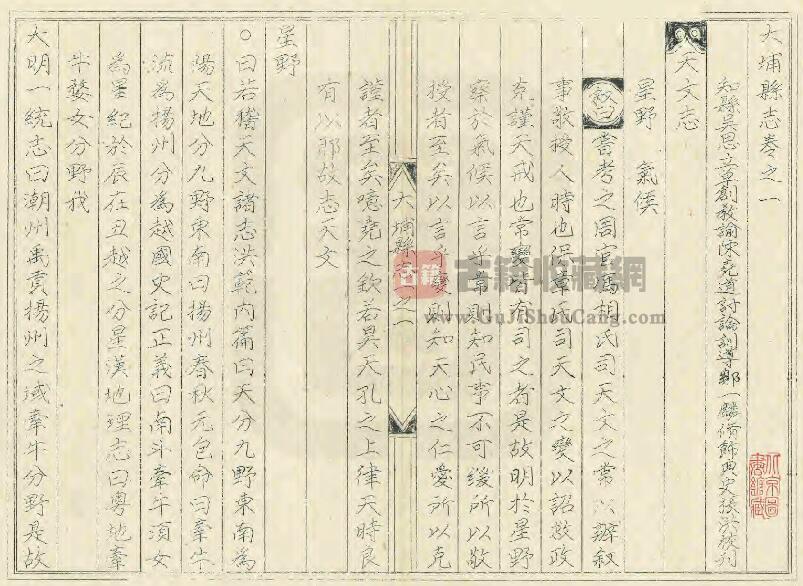 大埔縣志卷之一
知縣吳思立草創教諭陳堯道討論訓導鄒一麟脩飾典史張洪校刊
天文志
星野 氣候
敘曰嘗考之周官馮胡氏司天文之常以辨敘
事敬授人時也保章氏司天文之變以詔救政
克謹天戒也常變皆有司之者是故明於星野
察於氣候以言乎常則知民事不可緩所以敬
授者至矣以言乎變則知天心之仁愛所以克
謹者至矣噫堯之欽若昊天孔之上律天時良
有以耶故志天文
大埔縣志之一
星野
○曰若稽天文諸志洪範內篇曰天分九野東南為
陽天地分九野東南曰揚州春秋元包命曰牽牛
流為揚州分為越國史記正義曰南斗牽牛須女
為星紀於辰在丑越之分星漢地理志曰粵地牽
牛婺女分野我
大明一統志曰潮州禹貢揚州之域牽牛分野是故
古籍
古籍收藏網
www.GuJiShouCang.com